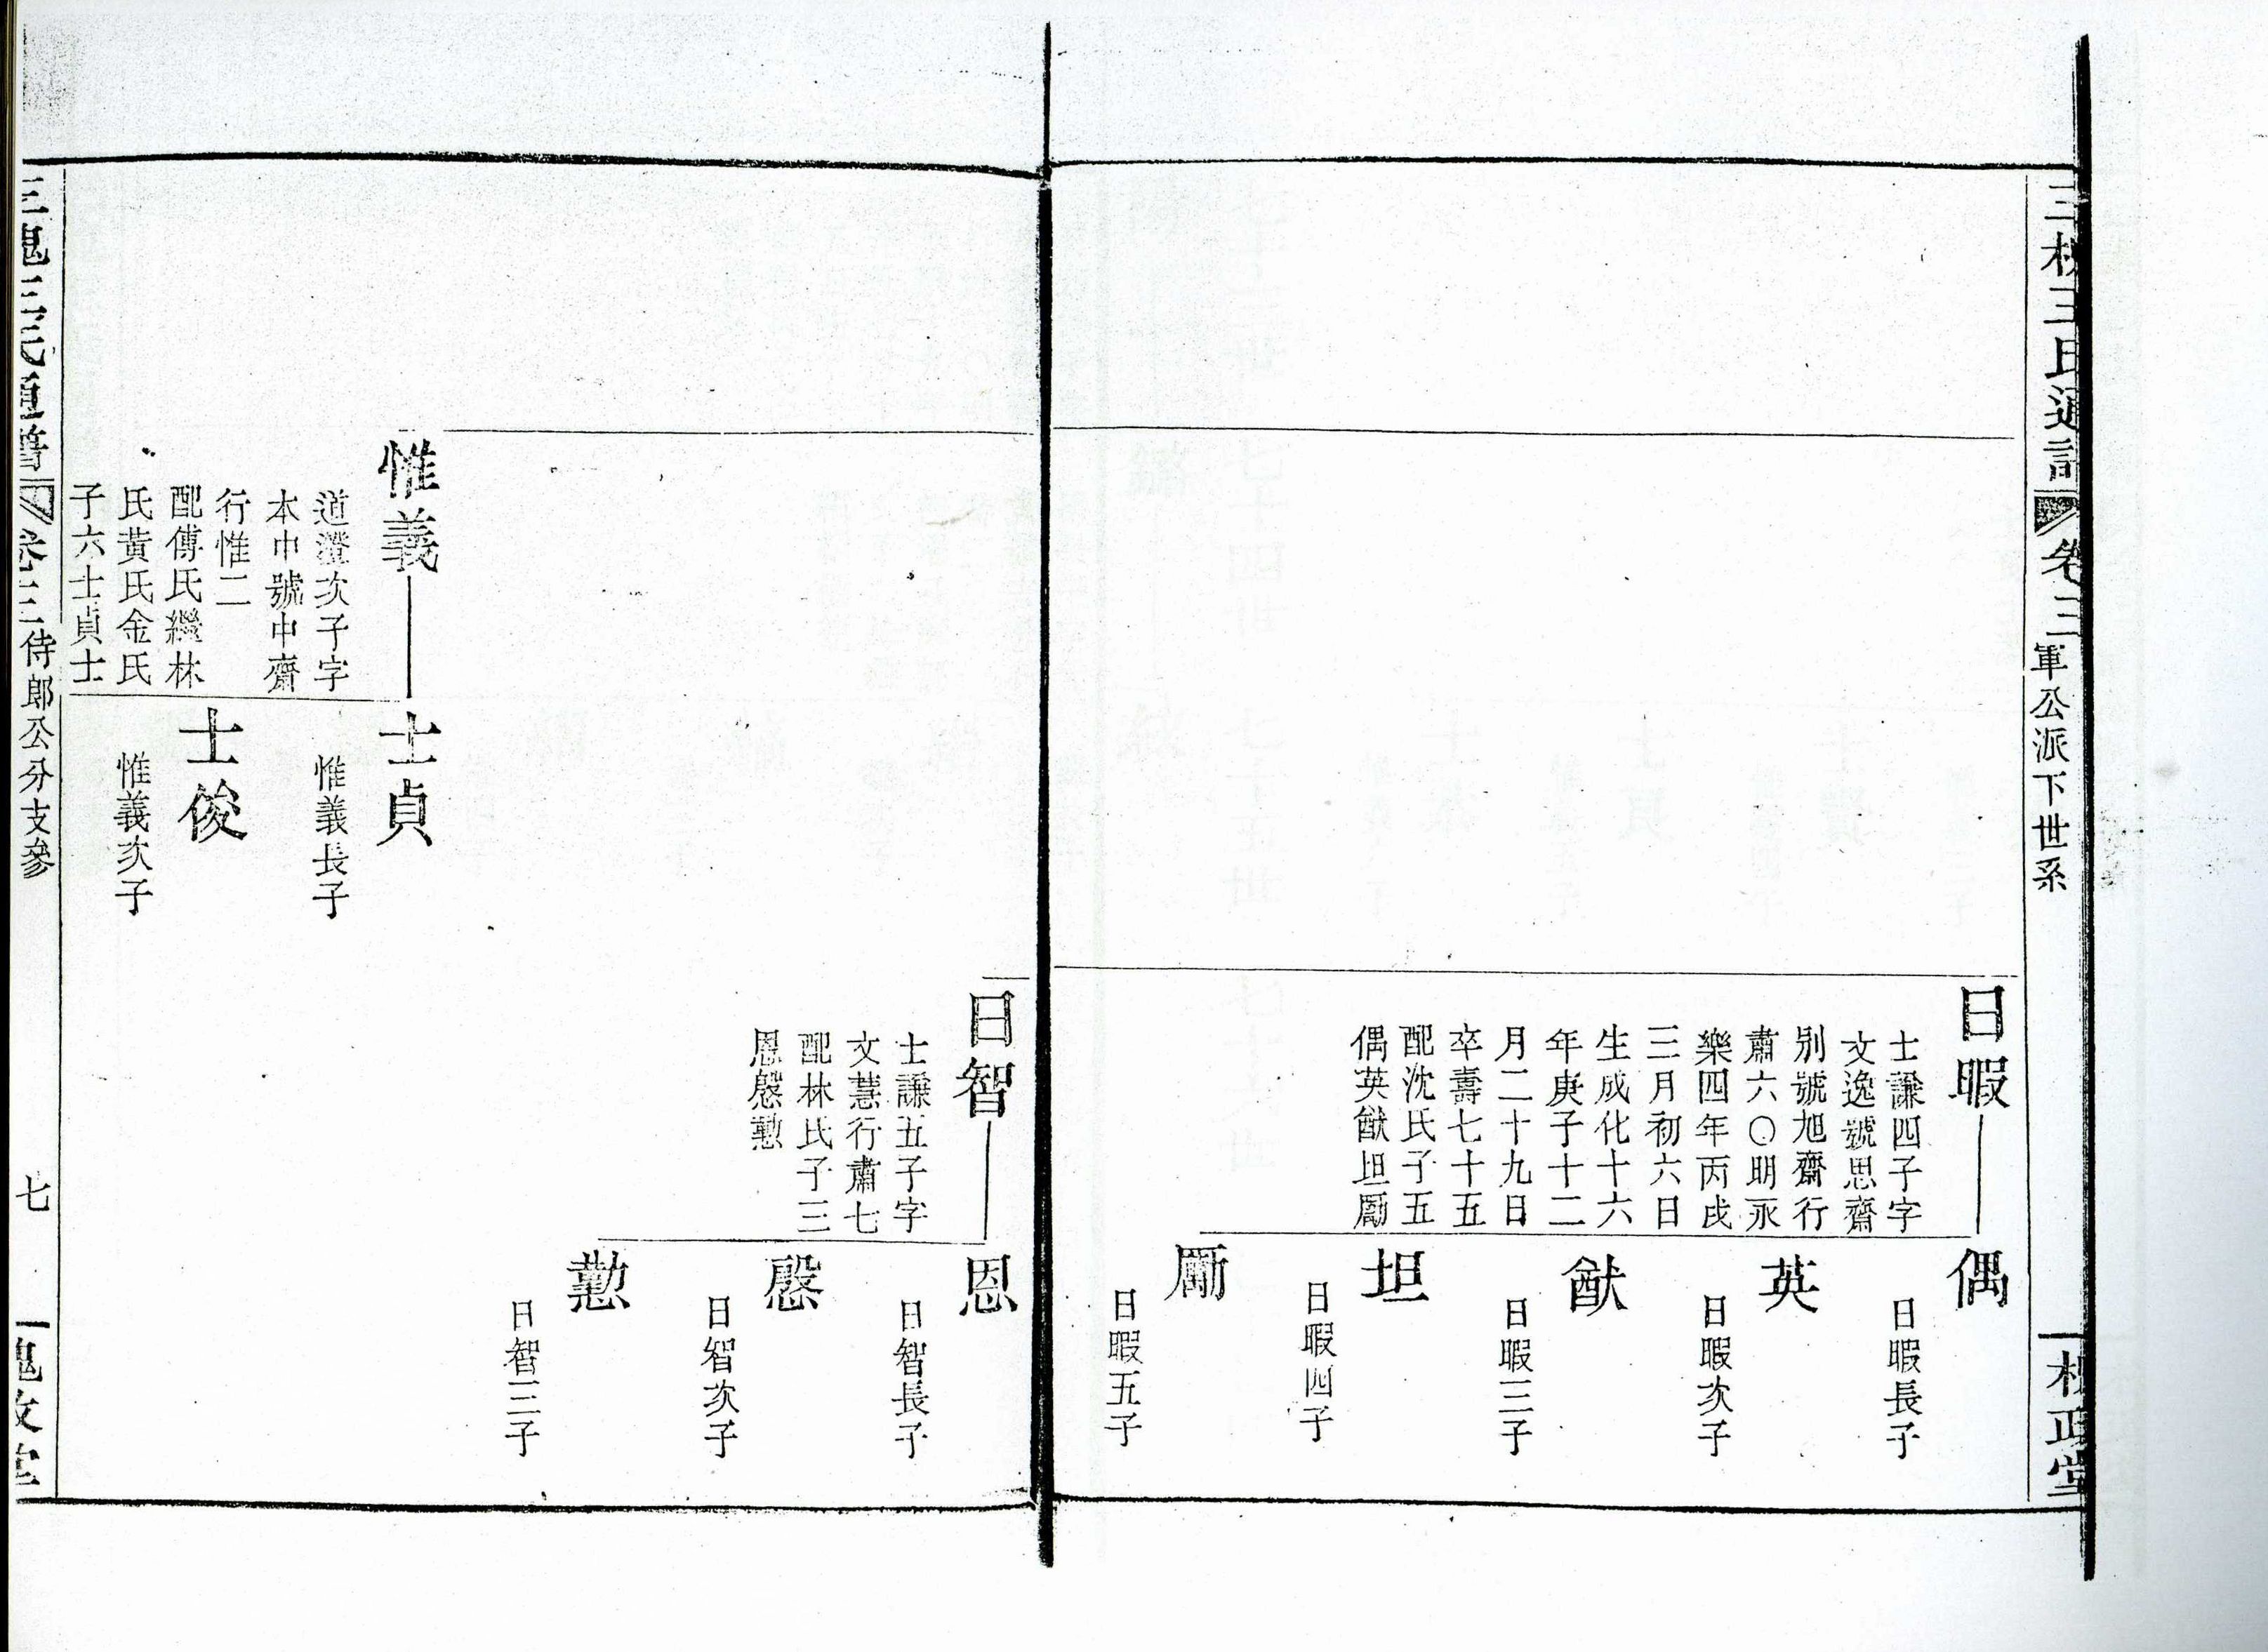 三槐王氏通譜 卷三 軍公派下世系 槐政堂
日暇
士謙四子字
文逸號思齋
別號旭齋行
肅六〇明永
樂四年丙戌
三月初六日
生成化十六
年庚子十二
月二十九日
卒壽七十五
配沈氏子五
偶英猷坦勵
偶
日暇長子
英
日暇次子
猷
日暇三子
坦
日暇四子
日暇五子
日智
士謙五子字
文慧行肅七
配林氏子三
恩慇懃
恩
日智長子
慇
日智次子
懃
日智三子
惟義
道瀅次子字
本中號中齋
行惟二
配傅氏繼林
氏黃氏金氏
子六士貞士
士貞
惟義長子
士俊
惟義次子
三槐王氏通譜 卷三 侍郎公分支參 七 槐政堂